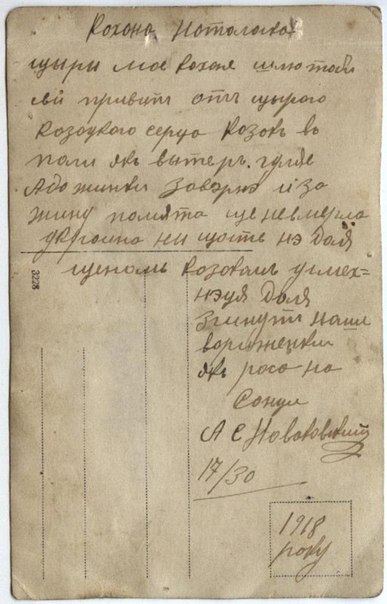 Кохана Наталочка
щыры мое кохая шлю тоби
свй привит отъ щырого
козацкого серца козакъ во
поли якъ вытеръ гуляе
Або жинки заверне и за
жинку помята ще невмерла
украина ни щасте нэ доля
щенамъ козакамъ усмех=
нэця доля
згинутъ наши
вороженьки
якъ роса на
Сонци
А С Новаковский
17/30
1918
року
3228